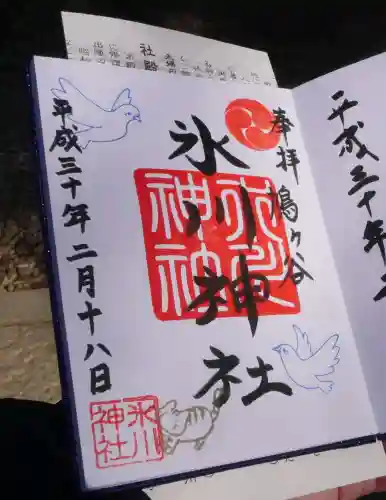 奉拝
鳩ヶ谷
氷川神社
平成三十年二月十八日
氷川神社
氷川神社
平成三十年二